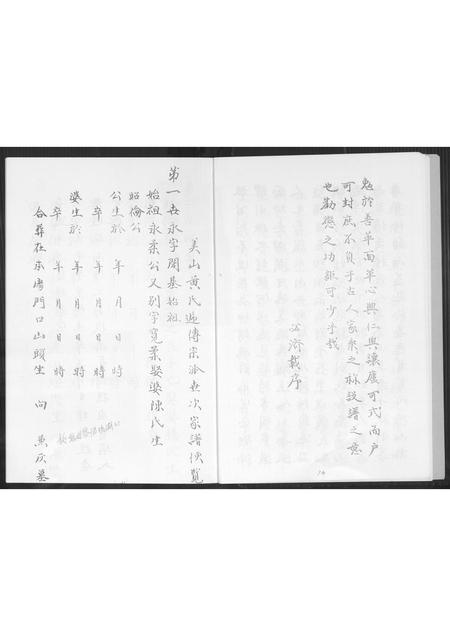 勉於吾革面革心興仁興讓廬可式而户
可封庶不負于古人家乘之林設譜之意
也勸懲之功詎可少乎哉
公濟載序
14
美山黄氏遞傳宗派世次家譜便覧
第一世永字開基始祖
始祖永柔公又别字寬柔娶婆陳氏生
昭倫公
公生於 年 月 日 時
卒 年 月 日 時
婆生於 年 月 日 時
卒 年 月 日 時
合葬在本房門口山頭坐 向